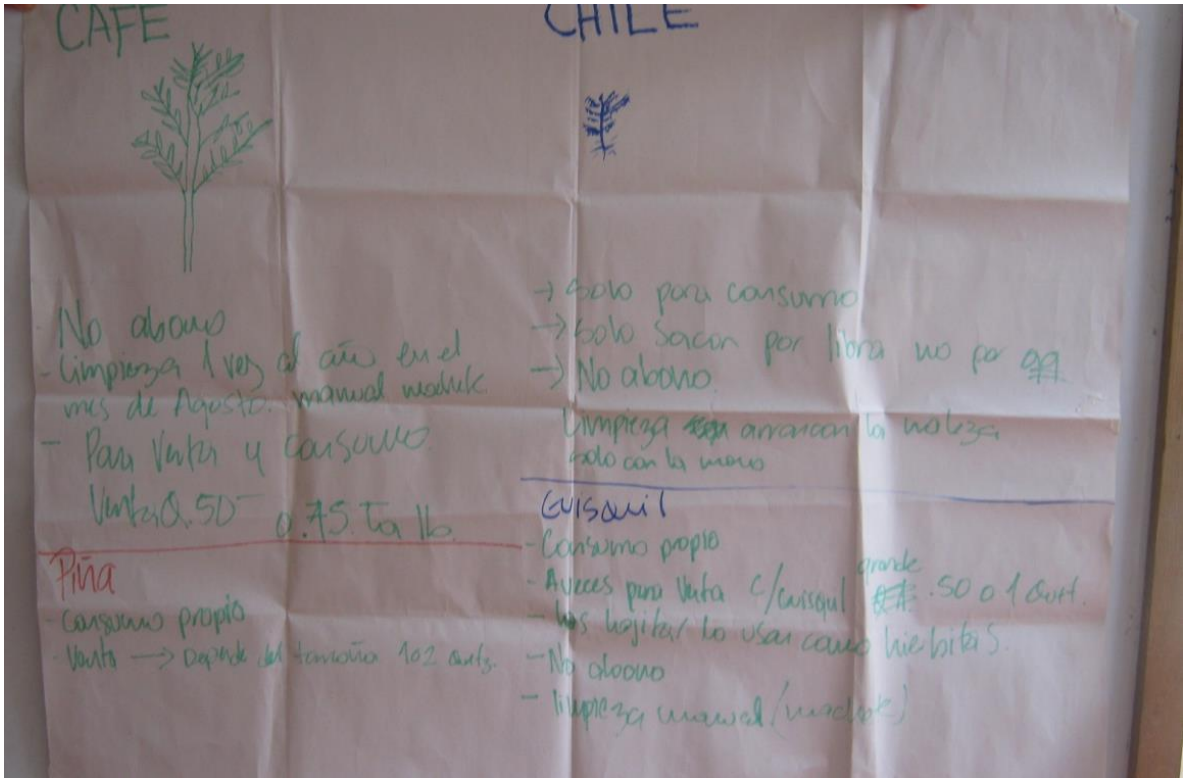 CAFE
No abono
- Limpieza 1 vez al año en el
mes de Agosto. manual
- Para Venta y consumo
Venta Q.50 0.75. la lb.
Piña
- Consumo propio
- Venta → Depende del tamaño 1 o 2
CHILE
→ Solo para consumo
→ Solo Sacan por libra no por qq
→ No abono.
Limpieza arrancan la maleza
solo con la mano
GUISQUIl
- Consumo propio
- Aveces para Venta c/Guisquil grande .50 o 1
- Las hojitas lo usan como hierbitas.
- No abono
- limpieza manual